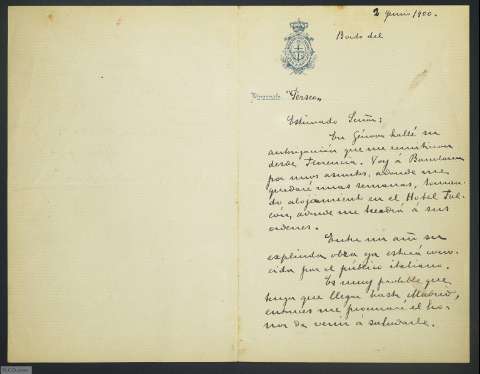 2 Junio 1900.
Bordo del
Piroscafo "Perseo"
Estimado Señor:
En Génova hallé su
autorización que me remitieron
desde Florencia. Voy á Barcelona
por unos asuntos, adonde me
quedaré unas semanas, toman-
do alojamiento en el Hotel Fal-
cón, adonde me tendrá á sus
ordenes.
Entre un año su
explendida obra ya estará cono-
cida por el público italiano.
Es muy probable que
tenga que llegar hasta Madrid,
entonces me procuraré el ho-
nor de venir á saludarle.